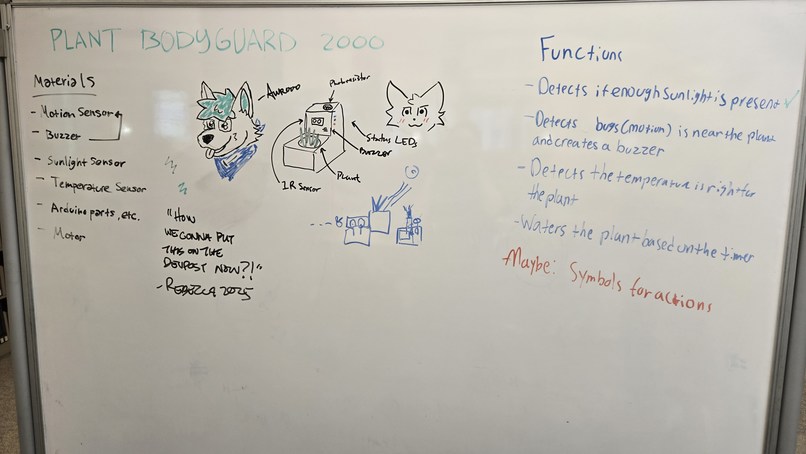 PLANT BODYGUARD 2000
Materials
- Motion Sensor
- Buzzer
- Sunlight Sensor
- Temperature Sensor
- Arduino parts, etc.
- Motor
Photoresistor
Status LEDs
Buzzer
Plant
IR Sensor
"HOW
WE GONNA PUT
THIS ON THE
DEVPOST NOW?!"
- REBECCA 2025
Functions
- Detects if enough sunlight is present ✓
- Detects bugs (motion) is near the plant
and creates a buzzer
- Detects the temperature is right for
the plant
- Waters the plant based on the timer
Maybe: Symbols for actions